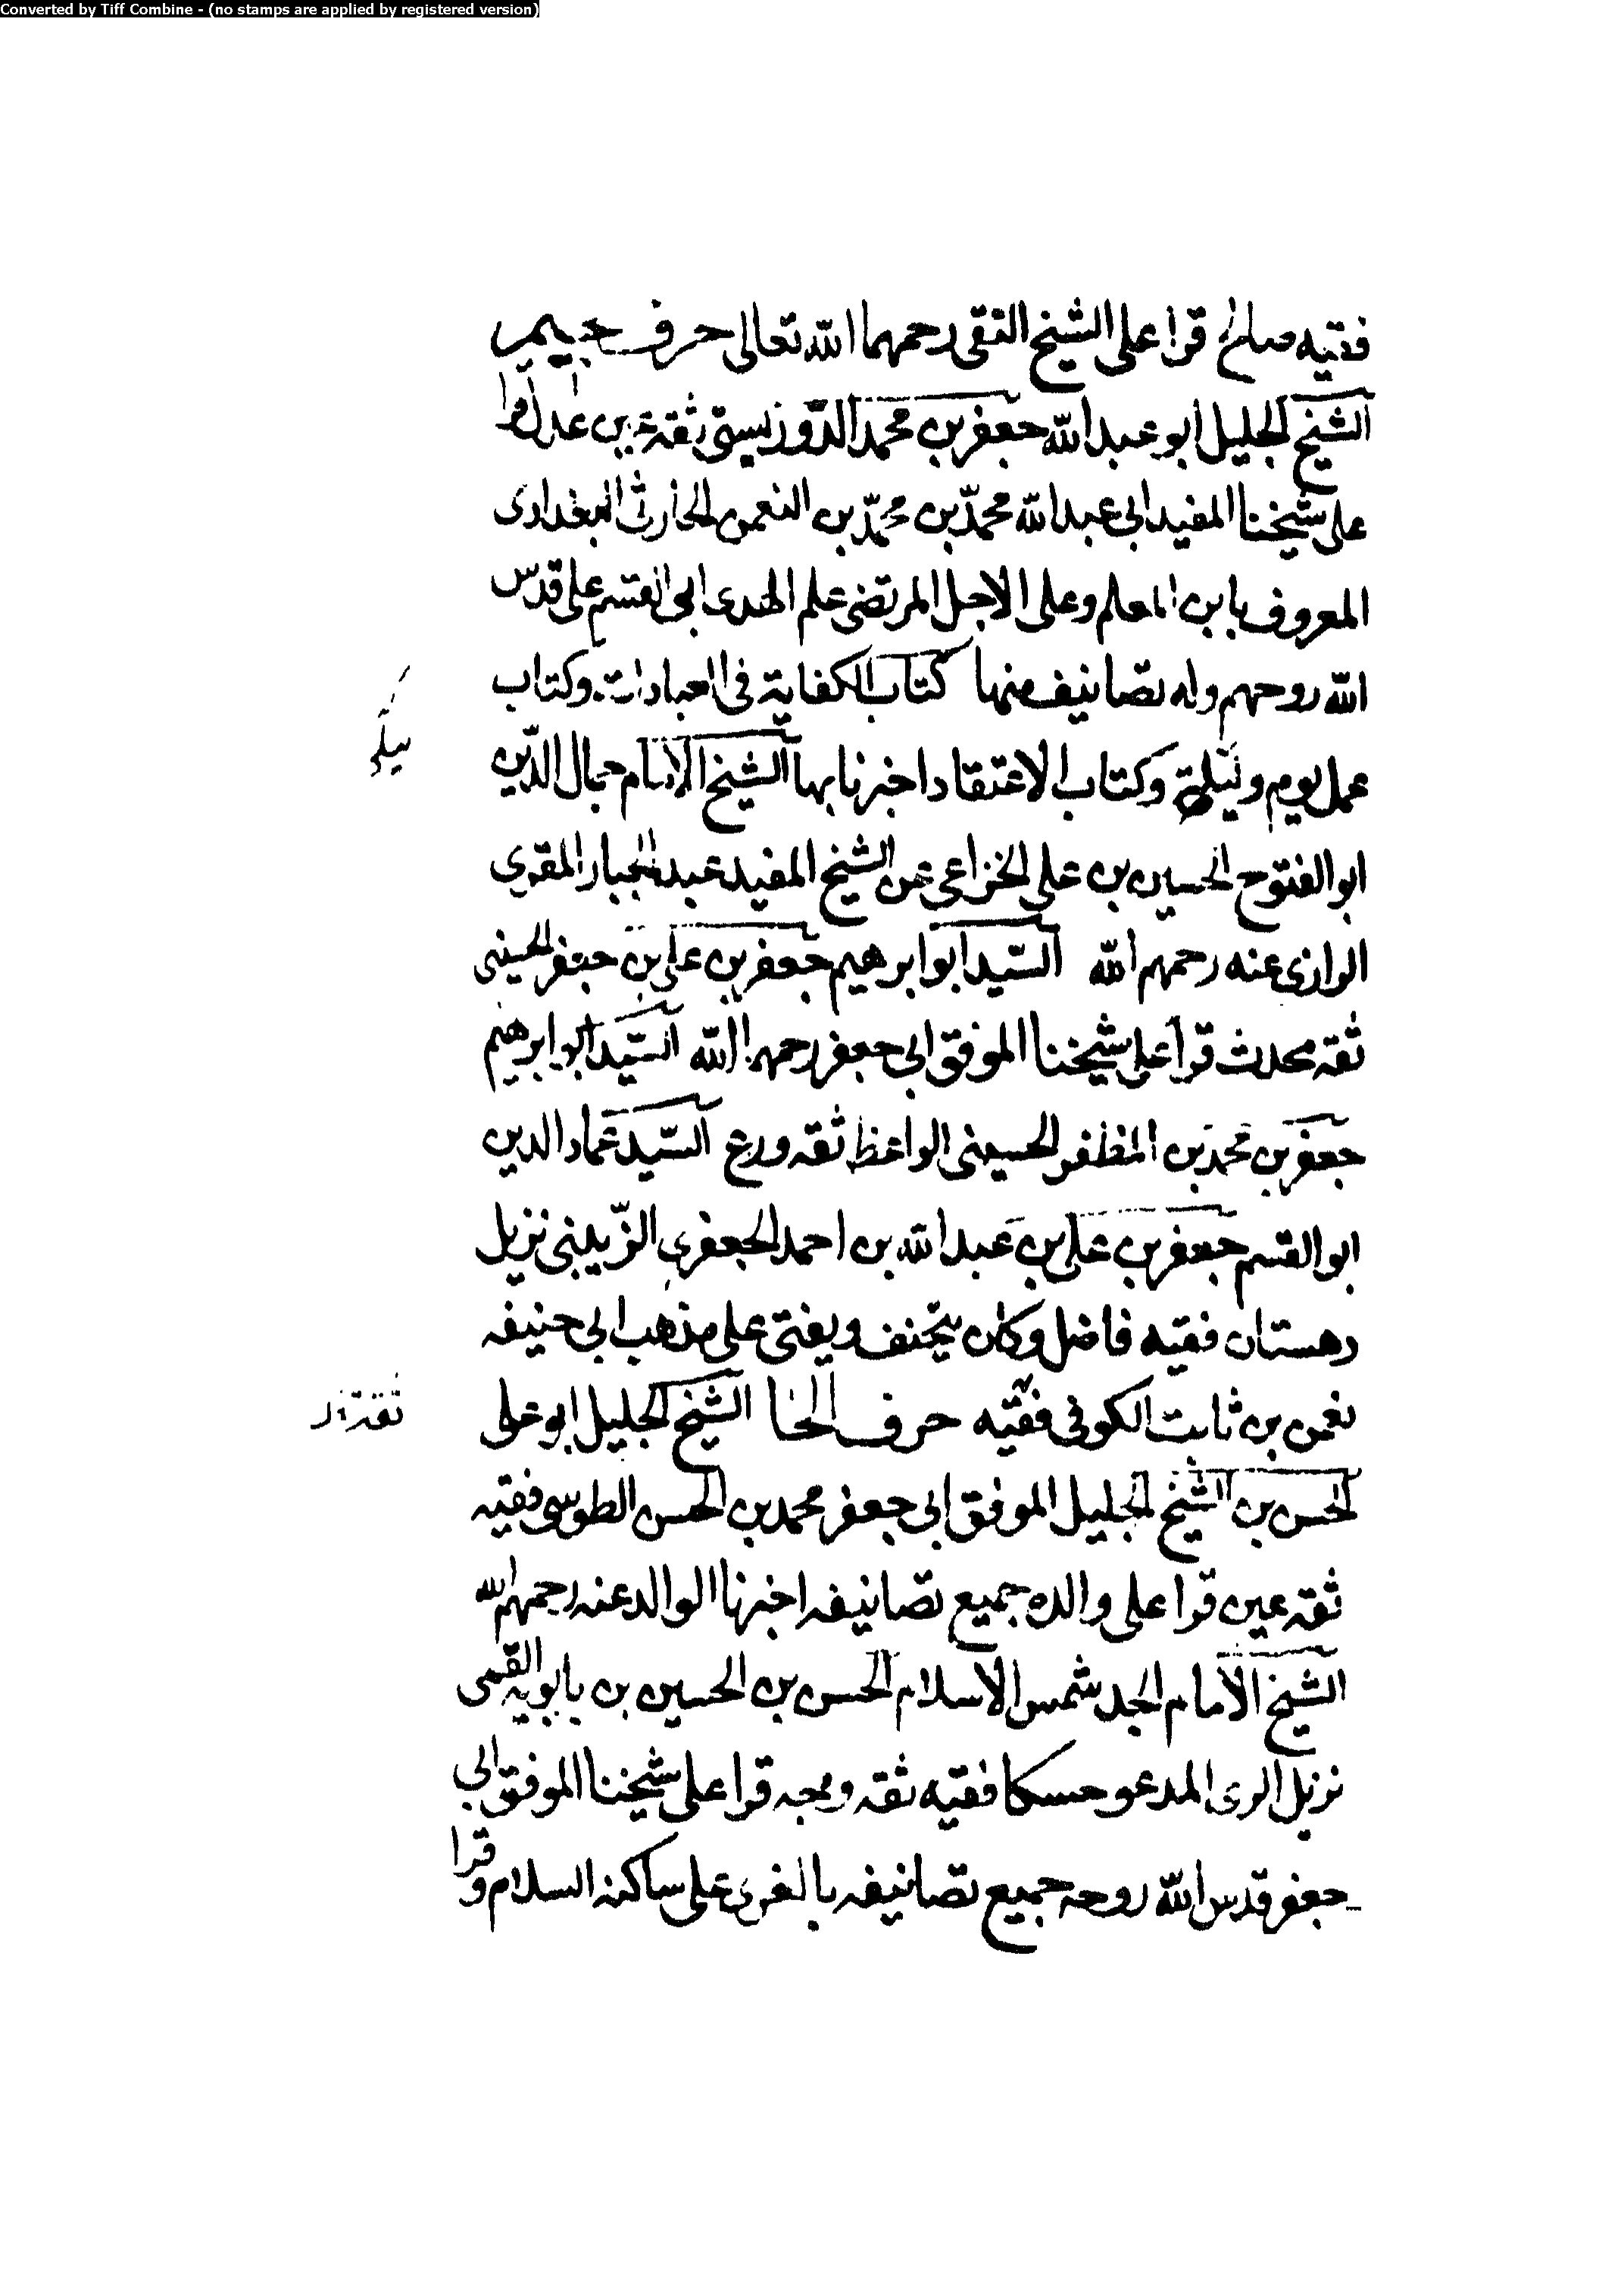 Converted by Tiff Combine - (no stamps are applied by registered version)
فقيه صالح قرا على الشيخ التقى رحمهما الله تعالى حرف جيم
الشيخ الجليل ابو عبد الله جعفر بن محمد الدوريستى ثقة عين عدل قرا
على شيخنا المفيد ابى عبد الله محمّد بن محمّد بن النعمن الحارثى البغدادى
المعروف بابن المعلم وعلى الاجل المرتضى علم الهدى ابى القسم على قدس
الله روحهم وله تصانيف منها كتاب الكفاية فى العبادات وكتاب
عمل يوم وليلة وكتاب الاعتقاد اخبرنا بها الشيخ الامام جمال الدّين
ابو الفتوح الحسين بن على الخزاعى عن الشيخ المفيد عبد الجبار المقرى
الرازى عنه رحمهم الله السّيد ابو ابرهيم جعفر بن على بن جعفر الحسينى
ثقه محدث قرا على شيخنا الموفق ابى جعفر رحمهما الله السّيد ابو ابرهيم
جعفر بن محمد بن المظفر الحسينى الواعظ ثقه ورع السّيد عماد الدين
ابو القسم جعفر بن على بن عبد الله بن احمد الجعفرى الزّينبى نزيل
دهستان فقيه فاضل وكان يتحنف ويفتى على مذهب ابى حنيفه
نعمن بن ثابت الكوفى فقيه حرف الحا الشيخ الجليل ابو على
ثقة
الحسن بن الشيخ الجليل الموفق ابى جعفر محمد بن الحسن الطوسى فقيه
ثقه عين قرا على والده جميع تصانيفه اخبرنا الوالد عنه رحمهم الله
الشيخ الامام الجد شمس الاسلام الحسن بن الحسين بن بابويه القمى
نزيل الرى المدعو حسكا فقيه ثقه وجه قرا على شيخنا الموفق ابى
جعفر قدس الله روحه جميع تصانيفه بالغرى على ساكنه السلام وقرا